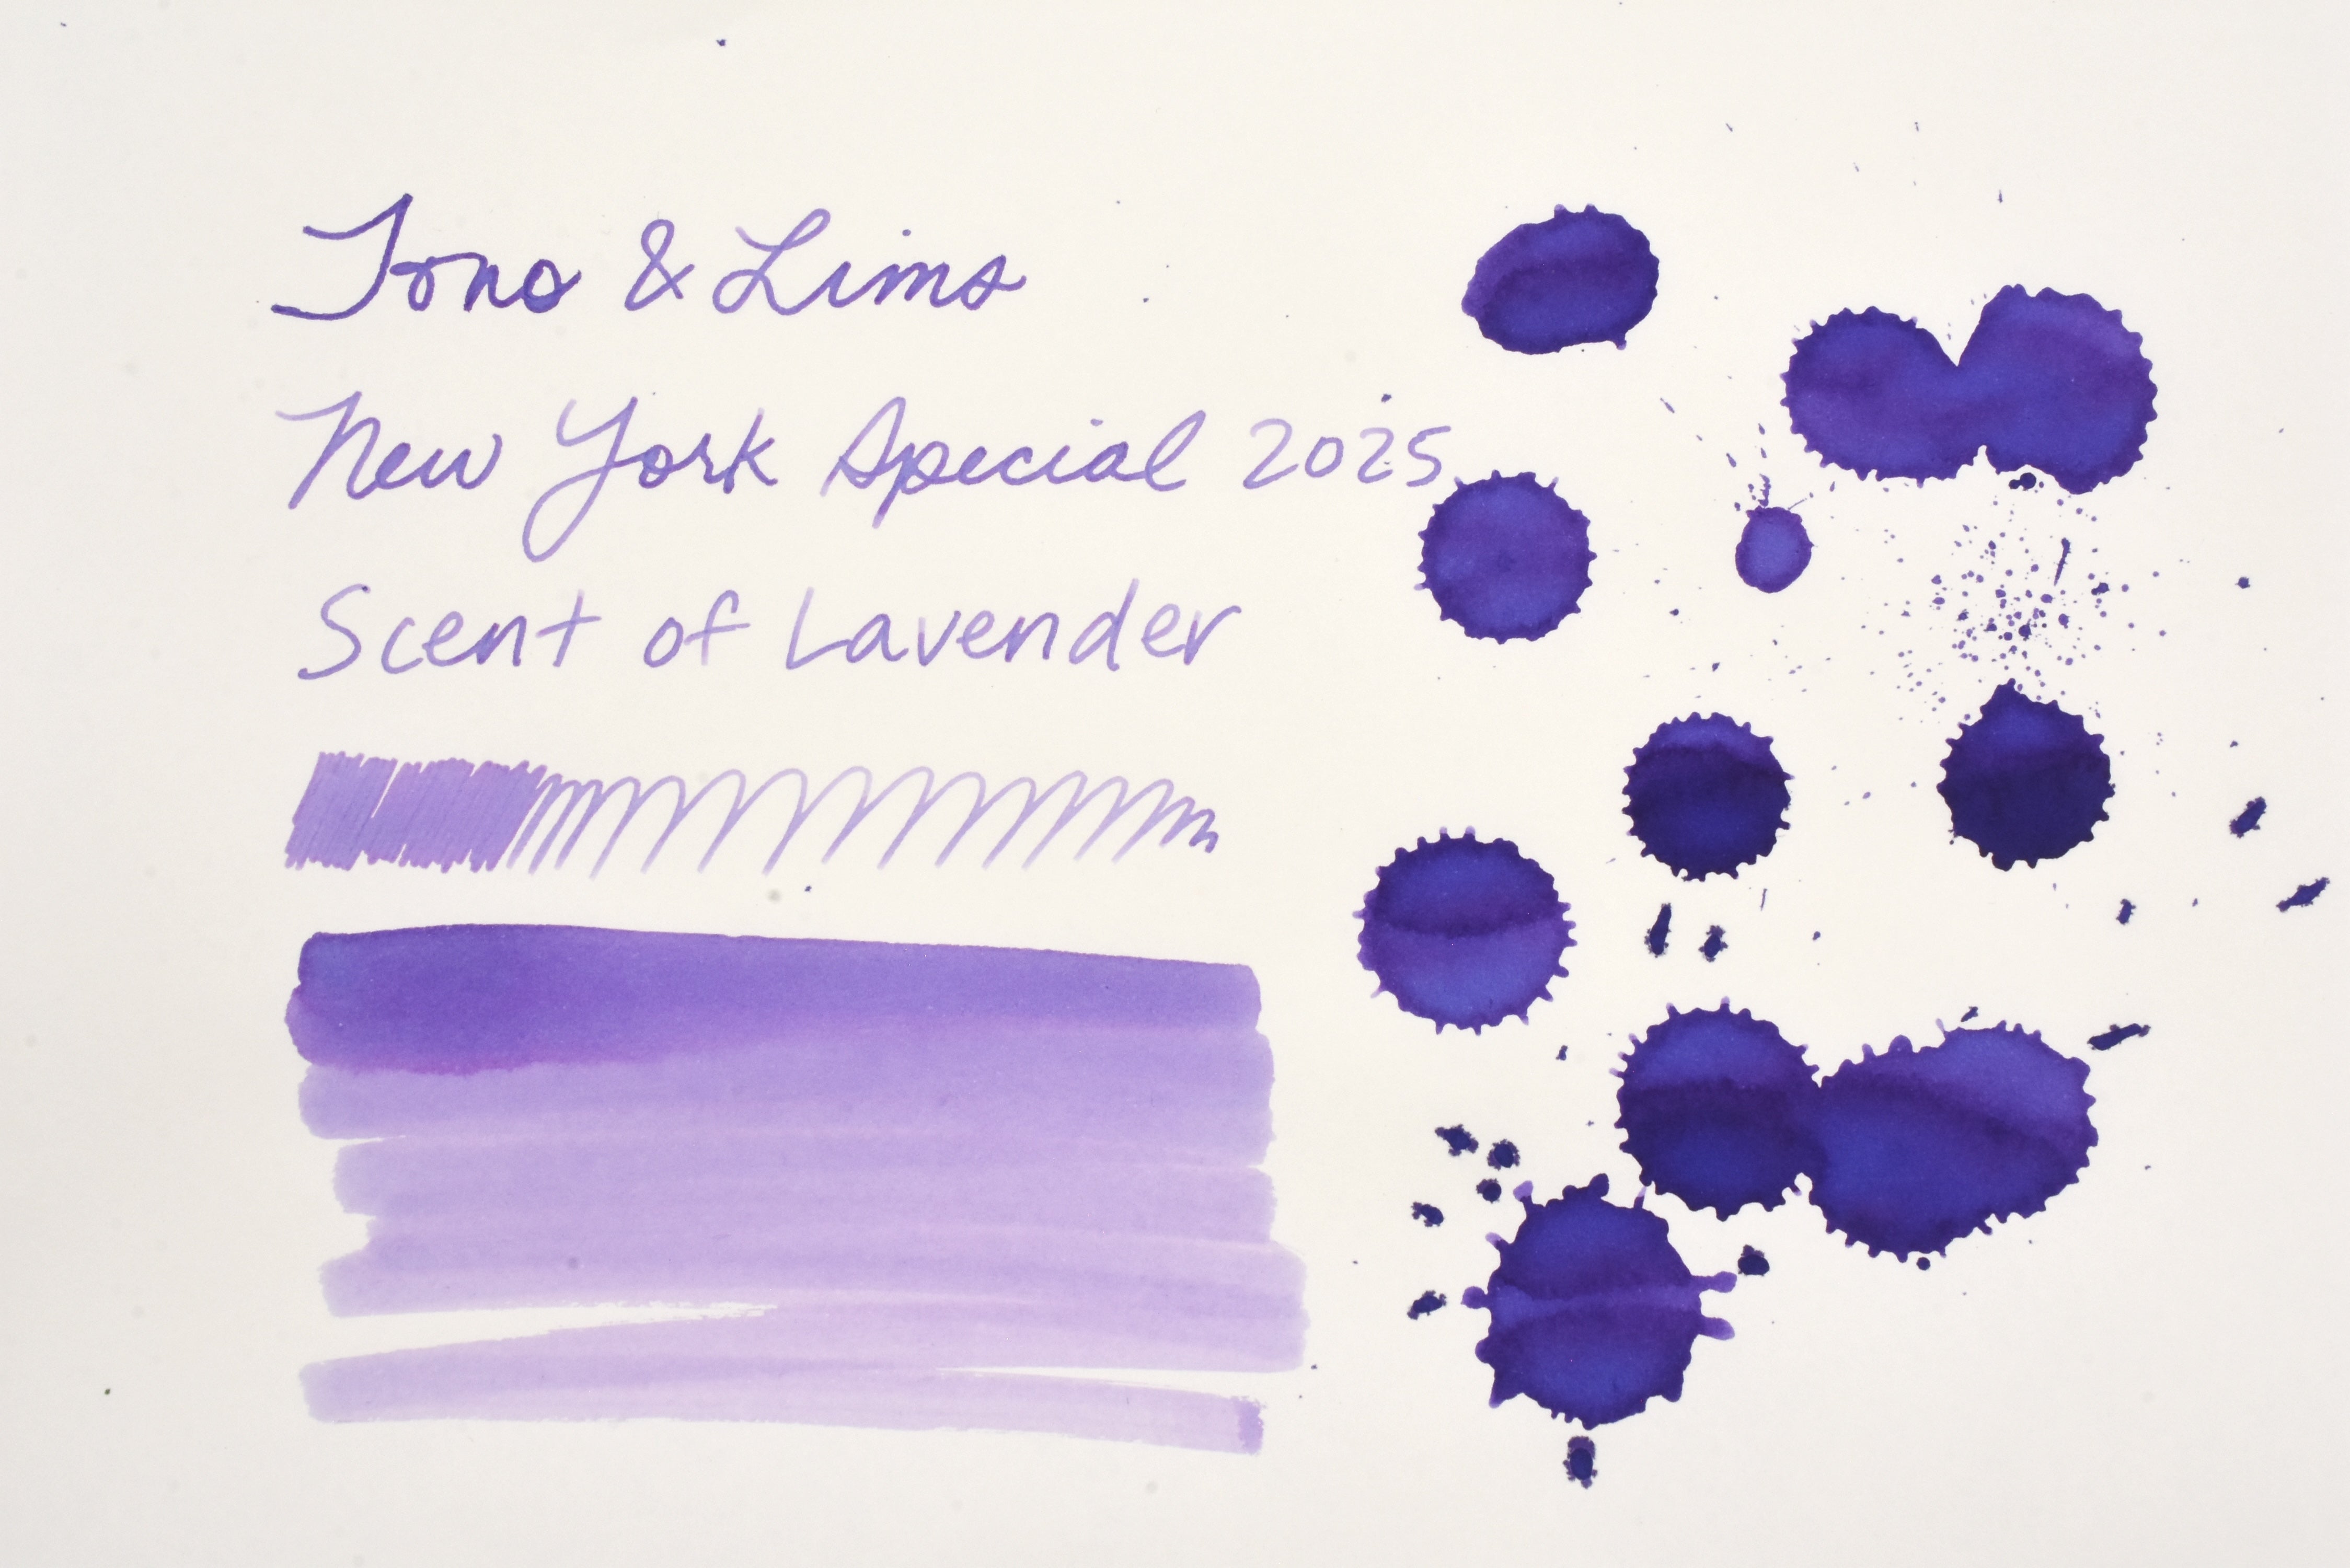 Tono & Lims
New York Special 2025
Scent of Lavender